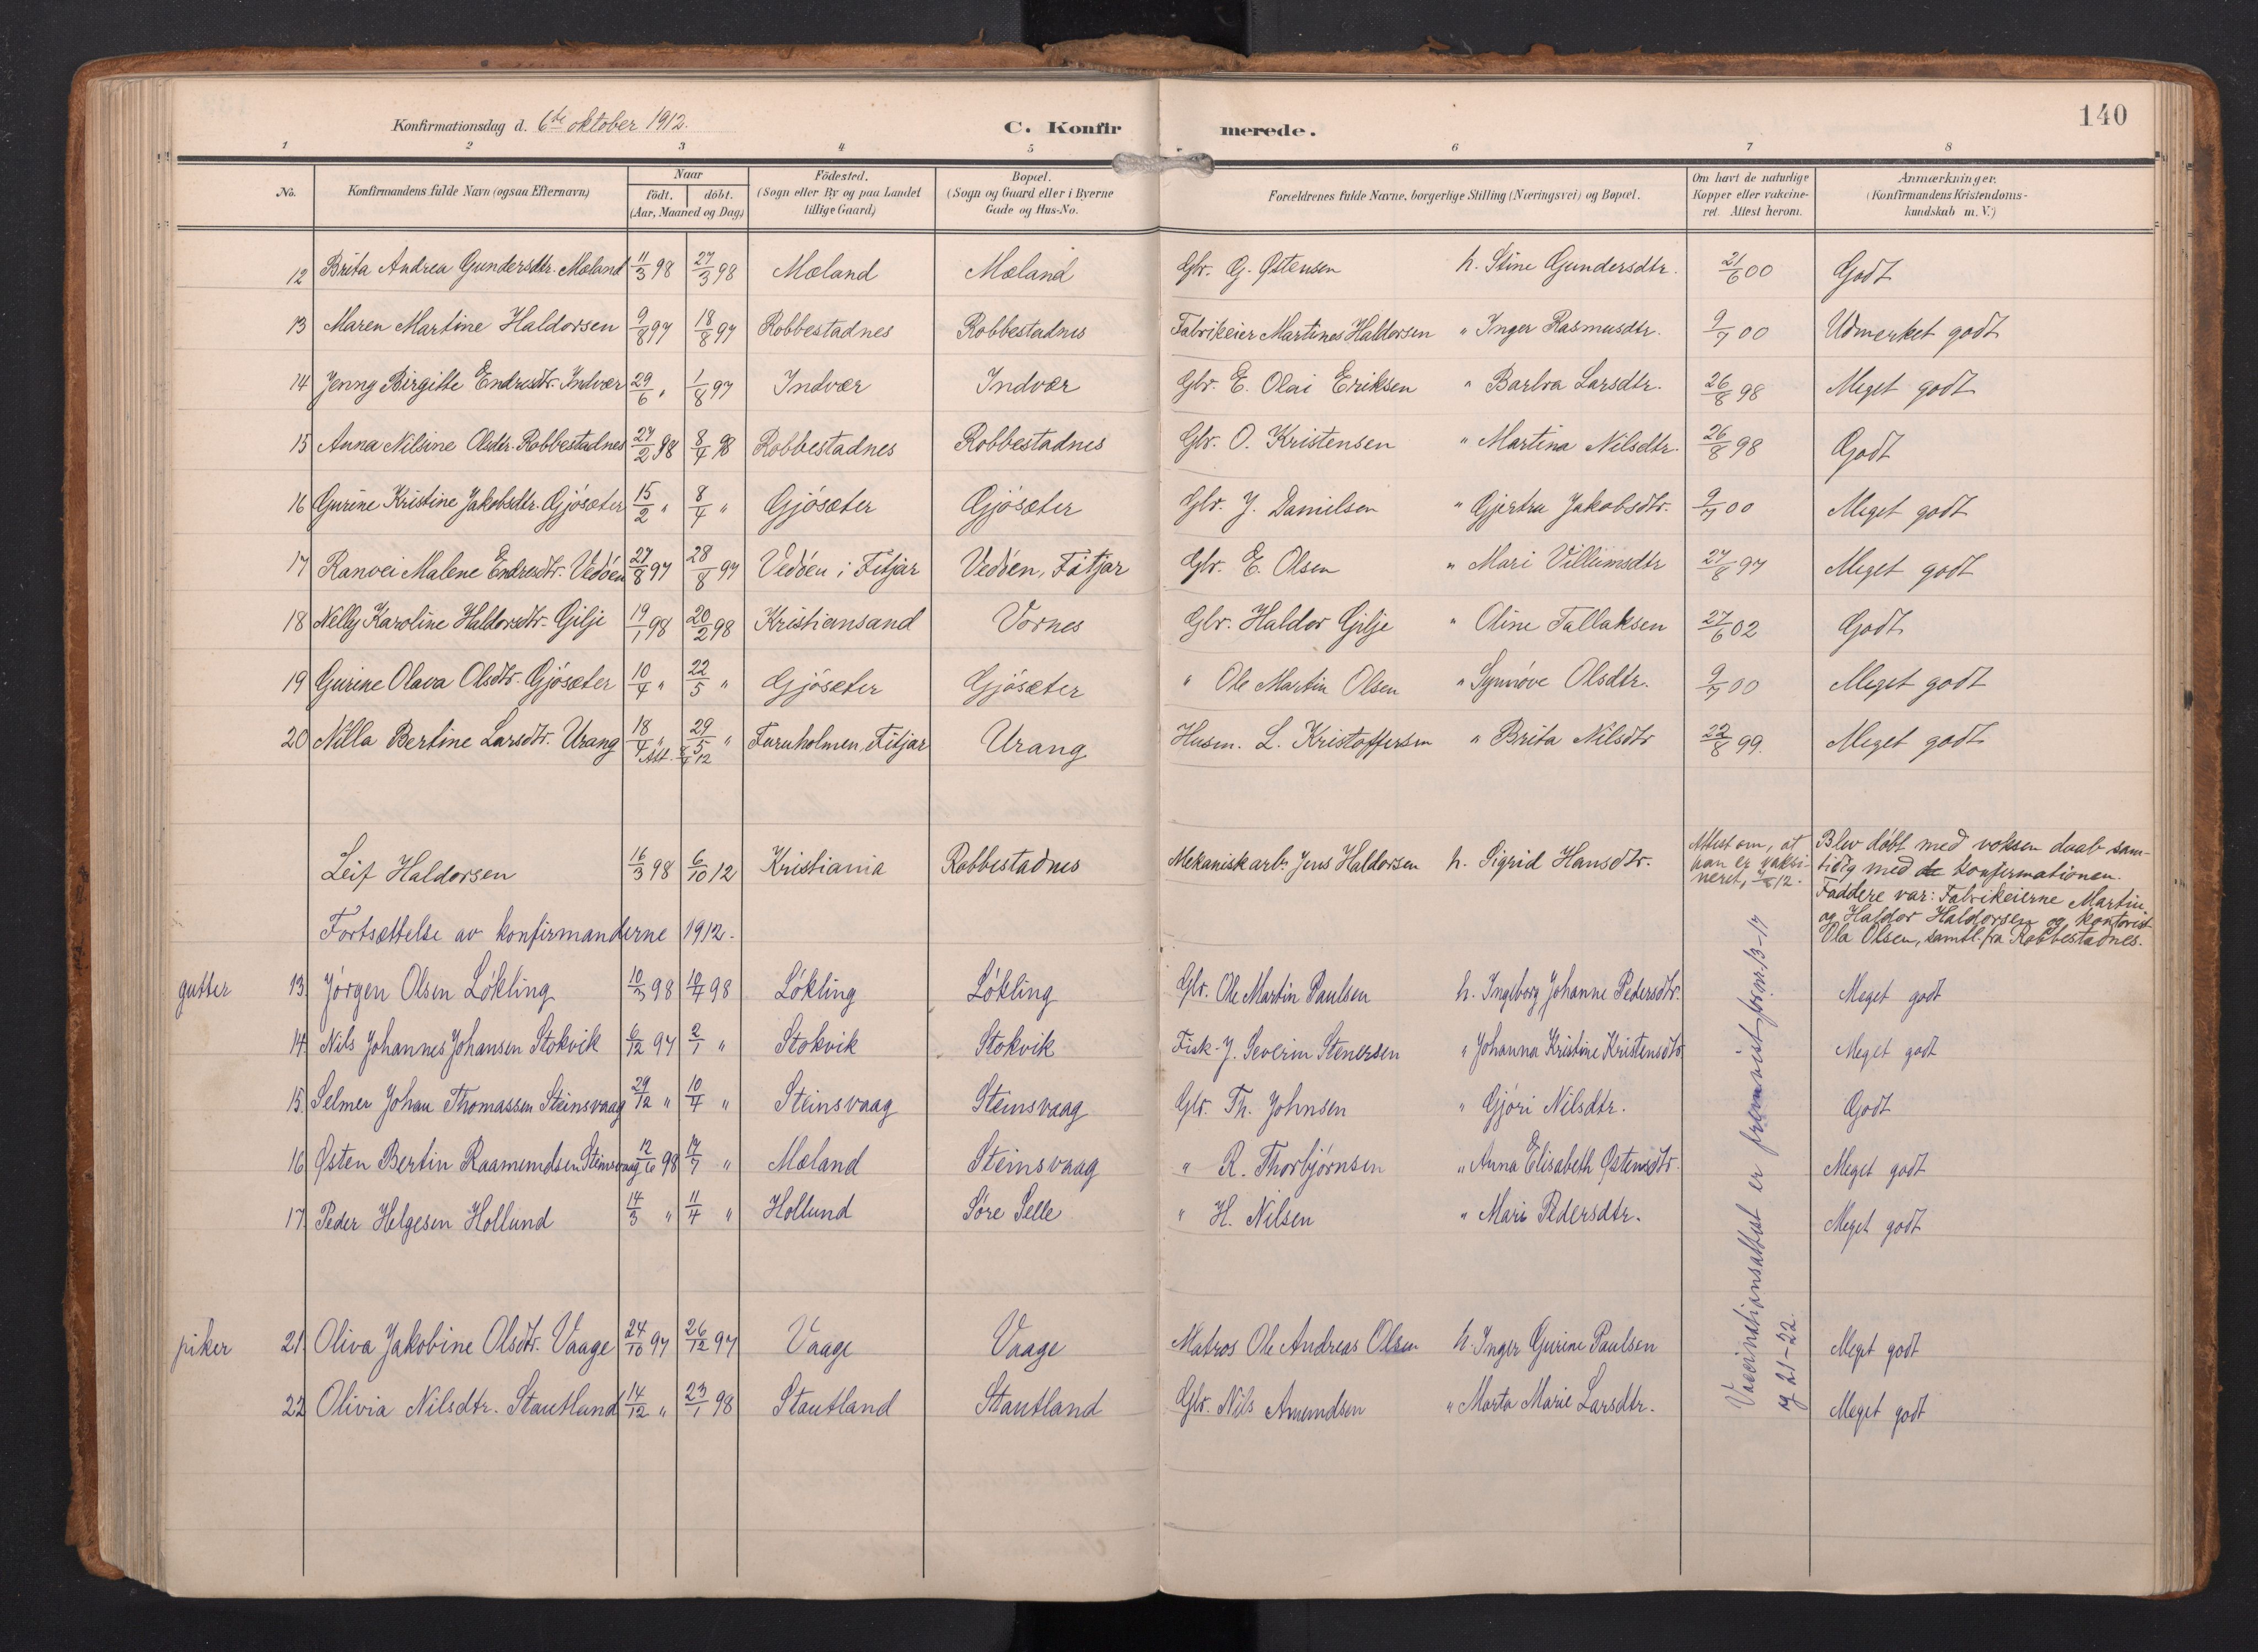 140
Konfirmationsdag d. 6te oktober 1912.
C. Konfir merede.
1 2 3 4 5 6 7 8
No. Konfirmandens fulde Navn (ogsaa Efternavn) Naar födt. döbt. (Aar, Maaned og Dag) Födested. (Sogn eller By og paa Landet tillige Gaard) Bopæl. (Sogn og Gaard eller i Byerne Gade og Hus-No. Forældrenes fulde Navne, borgerlige Stilling (Næringsvei) og Bopæl. Om havt de naturlige Kopper eller vakcineret. Attest herom. Anmærkninger. (Konfirmandens Kristendomskundskab m. V.)
12 Brita Andrea Gundersdtr. Mæland 11/3 98 27/3 98 Mæland Mæland Gbr. G. Østensen h. Stine Gundersdtr. 21/6 00 Godt
13 Maren Martine Haldorsen 9/8 97 18/8 97 Robbestadnes Robbestadnes Fabrikeier Martines Haldorsen " Inger Rasmusdtr. 9/7 00 Udmerket godt
14 Jenny Birgitte Endresdtr. Indvær 29/6 " 1/8 97 Indvær Indvær Gbr. E. Olai Eriksen " Barbra Larsdtr. 26/8 98 Meget godt
15 Anna Nilsine Olsdtr. Robbestadnes 27/2 98 8/4 98 Robbestadnes Robbestadnes Gbr. O. Kristensen " Martina Nilsdtr. 26/8 98 Godt
16 Gurine Kristine Jakobsdtr. Gjösæter 15/2 " 8/4 " Gjösæter Gjösæter Gbr. J. Danielsen " Gjertru Jakobsdtr. 9/7 00 Meget godt
17 Ranvei Malene Endresdtr. Vedöen 27/8 97 28/8 97 Vedöen i Fitjar Vedöen, Fitjar Gbr. E. Olsen " Mari Villumsdtr 27/8 97 Meget godt
18 Nelly Karoline Haldorsdtr. Gilje 19/1 98 20/2 98 Kristiansand Vornes Gbr. Haldor Gilje " Oline Tallaksen 27/6 02 Godt
19 Gurine Olava Olsdtr. Gjösæter 10/4 " 22/5 " Gjösæter Gjösæter " Ole Martin Olsen " Synnöve Olsdtr. 9/7 00 Meget godt
20 Nilla Bertine Larsdtr. Urang 18/4 " 29/5 " Furuholmen, Fitjar Urang Husm. L. Kristoffersen " Brita Nilsdtr 22/8 99. Meget godt
Att. 8/4 12
Leif Haldorsen 16/3 98 6/10 12 Kristiania Robbestadnes Mekanisk arb. Jens Haldorsen h. Sigrid Hansdtr.
Attest om, at
han er vaksi-
neret, 12.
Blev döbt med voksen daab sam-
tidig med konfirmationen.
Faddere var: Fabrikeierne Martin
og Haldor Haldorsen og kontorist
Ola Olsen, samtl. fra Robbestadnes.
Fortsættelse av konfirmanderne 1912.
gutter 13. Jörgen Olsen Lökling 10/3 98 10/4 98 Lökling Lökling Gbr. Ole Martin Paulsen h. Ingeborg Johanne Pedersdtr. Meget godt
14. Nils Johannes Johansen Stokvik 6/12 97 2/1 " Stokvik Stokvik Fisk. J. Severin Stenersen " Johanna Kristine Kristensdtr Meget godt
15. Selmer Johan Thomassen Steinsvaag 29/12 " 10/4 " Steinsvaag Steinsvaag Gbr. Th. Johnsen " Gjöri Nilsdtr. Godt
16. Østen Bertin Raamundsen Steinsvaag 12/6 98 17/7 " Mæland Steinsvaag " R. Thorbjörnsen " Anna Elisabeth Østensdtr. Meget godt
17. Peder Helgesen Hollund 14/3 " 11/4 " Hollund Söre Selle " H. Nilsen " Mari Pedersdtr. Meget godt
piker 21. Oliva Jakobine Olsdtr. Vaage 24/10 97 26/12 97 Vaage Vaage Matros Ole Andreas Olsen h. Inger Gurine Paulsen Meget godt
22 Olivia Nilsdtr. Stautland 14/12 " 23/1 98 Stautland Stautland Gbr. Nils Amundsen " Marta Marie Larsdtr. Meget godt
Vaccinationsattest er fremvist for nr. 13-17
og 21-22.